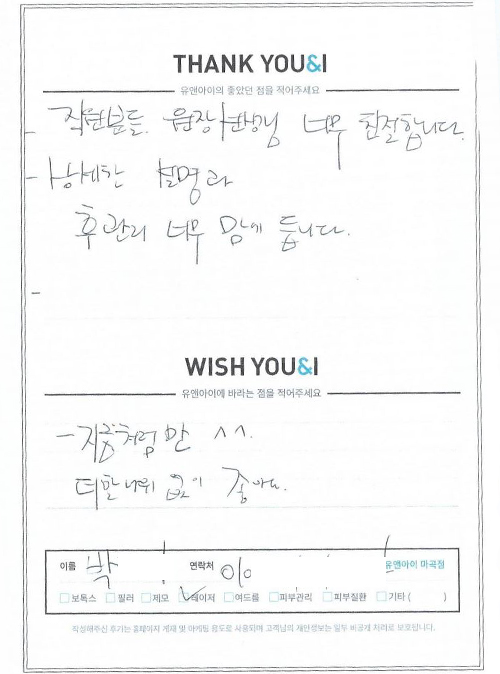 THANK YOU&I
유앤아이의 좋았던 점을 적어주세요
- 직원분들. 원장선생님 너무 친절합니다.
- 상세한 설명과
후관리 너무 맘에 듭니다.
-
WISH YOU&I
유앤아이에 바라는 점을 적어주세요
- 지금처럼만 ^^.
더할나위 없이 좋아요.
이름 박 연락처 010 유앤아이 마곡점
보톡스 필러 제모 레이저 여드름 피부관리 피부질환 기타 ( )
작성해주신 후기는 홈페이지 게재 및 마케팅 용도로 사용되며 고객님의 개인정보는 일부 비공개 처리로 보호됩니다.